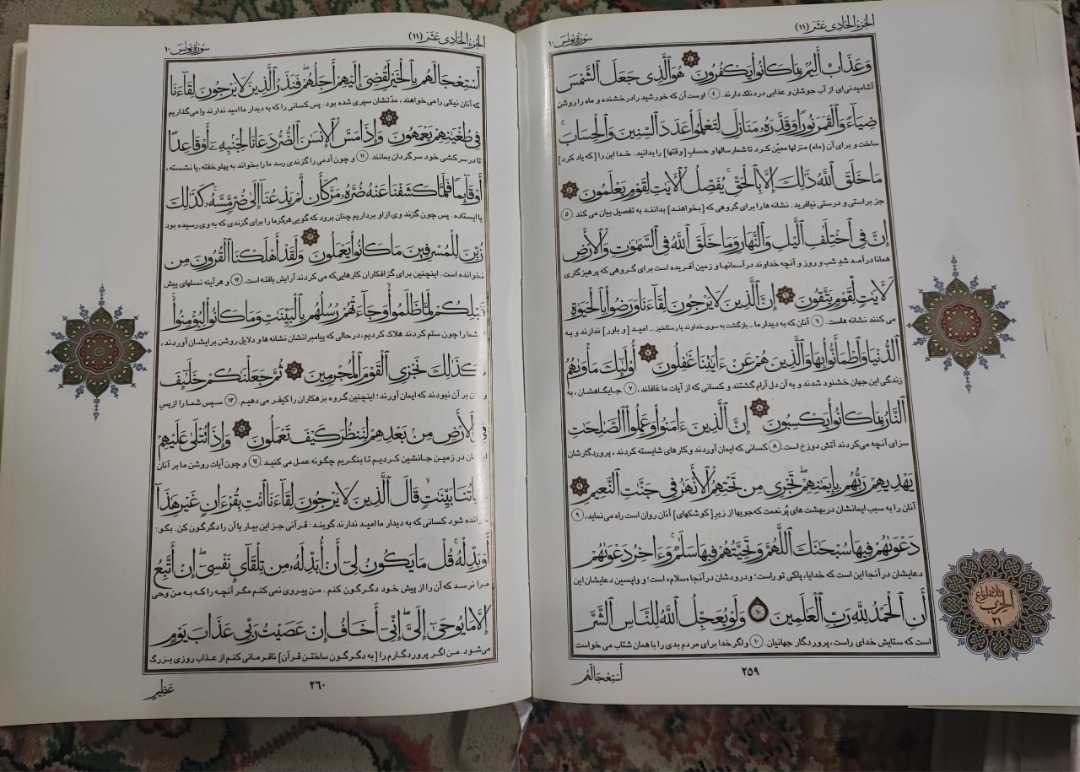 الجزء الحادی عشر (۱۱)
سورة یونس ۱۰
وَعَذَابٌ أَلِيمٌ بِمَا كَانُوا يَكْفُرُونَ ۴ هُوَ الَّذِي جَعَلَ الشَّمْسَ
آشامیدنی‌ای از آب جوشان و عذابی دردناک دارند. (۴) اوست آن که خورشید را درخشنده و ماه را روشن
ضِيَاءً وَالْقَمَرَ نُورًا وَقَدَّرَهُ مَنَازِلَ لِتَعْلَمُوا عَدَدَ السِّنِينَ وَالْحِسَابَ
ساخت و برای آن (ماه) منزلها معیّن کرد تا شمار سالها و حساب [وقتها] را بدانید. خدا این را [که یاد کرد]
مَا خَلَقَ اللَّهُ ذَلِكَ إِلَّا بِالْحَقِّ يُفَصِّلُ الْآيَاتِ لِقَوْمٍ يَعْلَمُونَ ۵
جز براستی و درستی نیافرید. نشانه ها را برای گروهی که [بخواهند] بدانند به تفصیل بیان می کند (۵)
إِنَّ فِي اخْتِلَافِ اللَّيْلِ وَالنَّهَارِ وَمَا خَلَقَ اللَّهُ فِي السَّمَوَتِ وَالْأَرْضِ
همانا در آمد شدِ شب و روز و آنچه خداوند در آسمانها و زمین آفریده است برای گروهی که پرهیزگاری
لَآيَاتٍ لِقَوْمٍ يَتَّقُونَ ۶ إِنَّ الَّذِينَ لَا يَرْجُونَ لِقَاءَنَا وَرَضُوا بِالْحَيَوةِ
می کنند نشانه هاست. (۶) آنان که به دیدار ما ـ بازگشت به سوی خداوند یا رستاخیز ـ امید [و باور] ندارند و به
الدُّنْيَا وَاطْمَأَنُّوا بِهَا وَالَّذِينَ هُمْ عَنْ ءَايَاتِنَا غَافِلُونَ ۷ أُولَئِكَ مَأْوَاهُمُ
زندگی این جهان خشنود شدند و به آن دل آرام گشتند و کسانی که از آیات ما غافلند، (۷) جایگاهشان، به
النَّارُ بِمَا كَانُوا يَكْسِبُونَ ۸ إِنَّ الَّذِينَ ءَامَنُوا وَعَمِلُوا الصَّالِحَاتِ
سزای آنچه می‌کردند آتش دوزخ است. (۸) کسانی که ایمان آوردند و کارهای شایسته کردند، پروردگارشان
يَهْدِيهِمْ رَبُّهُمْ بِإِيمَانِهِمْ تَجْرِي مِنْ تَحْتِهِمُ الْأَنْهَارُ فِي جَنَّاتِ النَّعِيمِ ۹
آنان را به سبب ایمانشان در بهشت های پُر نعمت که جویها از زیر [کوشکهای] آنان روان است راه می نماید. (۹)
دَعْوَاهُمْ فِيهَا سُبْحَانَكَ اللَّهُمَّ وَتَحِيَّتُهُمْ فِيهَا سَلَامٌ وَءَاخِرُ دَعْوَاهُمْ
دعایشان در آنجا این است که خدایا، پاکی تو راست؛ و درودشان در آنجا «سلام» است؛ و واپسین دعایشان این
أَنِ الْحَمْدُ لِلَّهِ رَبِّ الْعَالَمِينَ ۱۰ وَلَوْ يُعَجِّلُ اللَّهُ لِلنَّاسِ الشَّرَّ
است که ستایش خدای راست، پروردگار جهانیان. (۱۰) و اگر خدا برای مردم بدی را با همان شتاب می خواست
الحزب
۲۱
۲۵۹
اسْتِعْجَالَهُمْ
الجزء الحادی عشر (۱۱)
سورة یونس ۱۰
اسْتِعْجَالَهُمْ بِالْخَيْرِ لَقُضِيَ إِلَيْهِمْ أَجَلُهُمْ فَنَذَرُ الَّذِينَ لَا يَرْجُونَ لِقَاءَنَا
که آنان نیکی را می خواهند، مدّتشان سپری شده بود. پس کسانی را که به دیدار ما امید ندارند وا می گذاریم
فِي طُغْيَانِهِمْ يَعْمَهُونَ ۱۱ وَإِذَا مَسَّ الْإِنْسَانَ الضُّرُّ دَعَانَا لِجَنْبِهِ أَوْ قَاعِدًا
تا در سرکشی خود سرگردان بمانند. (۱۱) و چون آدمی را گزندی رسد ما را بخواند به پهلو خفته، یا نشسته،
أَوْ قَائِمًا فَلَمَّا كَشَفْنَا عَنْهُ ضُرَّهُ مَرَّ كَأَنْ لَمْ يَدْعُنَا إِلَى ضُرٍّ مَسَّهُ كَذَلِكَ
یا ایستاده. پس چون گزند وی از او برداریم چنان برود که گویی هرگز ما را برای گزندی که به وی رسیده بود
زُيِّنَ لِلْمُسْرِفِينَ مَا كَانُوا يَعْمَلُونَ ۱۲ وَلَقَدْ أَهْلَكْنَا الْقُرُونَ مِنْ
نخوانده است. اینچنین برای گزافکاران کارهایی که می کردند آرایش یافته است. (۱۲) و هر آینه نسلهای پیش
قَبْلِكُمْ لَمَّا ظَلَمُوا وَجَاءَتْهُمْ رُسُلُهُمْ بِالْبَيِّنَاتِ وَمَا كَانُوا لِيُؤْمِنُوا
شما را چون ستم کردند هلاک کردیم، در حالی که پیامبرانشان نشانه ها و دلایل روشن برایشان آوردند،
كَذَلِكَ نَجْزِي الْقَوْمَ الْمُجْرِمِينَ ۱۳ ثُمَّ جَعَلْنَاكُمْ خَلَائِفَ
بر آن نبودند که ایمان آورند؛ اینچنین گروه بزهکاران را کیفر می دهیم. (۱۳) سپس شما را از پسِ
فِي الْأَرْضِ مِنْ بَعْدِهِمْ لِنَنْظُرَ كَيْفَ تَعْمَلُونَ ۱۴ وَإِذَا تُتْلَى عَلَيْهِمْ
در زمین جانشین کردیم تا بنگریم چگونه عمل می کنید. (۱۴) و چون آیات روشن ما بر آنان
ءَايَاتُنَا بَيِّنَاتٍ قَالَ الَّذِينَ لَا يَرْجُونَ لِقَاءَنَا ائْتِ بِقُرْءَانٍ غَيْرِ هَذَا
خوانده شود کسانی که به دیدار ما امید ندارند گویند: قرآنی جز این بیار یا آن را دگرگون کن. بگو:
أَوْ بَدِّلْهُ قُلْ مَا يَكُونُ لِي أَنْ أُبَدِّلَهُ مِنْ تِلْقَاءِ نَفْسِي إِنْ أَتَّبِعُ
مرا نرسد که آن را از پیش خود دگرگون کنم. من پیروی نمی کنم مگر آنچه را که به من وحی
إِلَّا مَا يُوحَى إِلَيَّ إِنِّي أَخَافُ إِنْ عَصَيْتُ رَبِّي عَذَابَ يَوْمٍ
می شود. من اگر پروردگارم را [به دگرگون ساختن قرآن] نافرمانی کنم از عذاب روزی بزرگ
۲۶۰
عَظِيمٍ